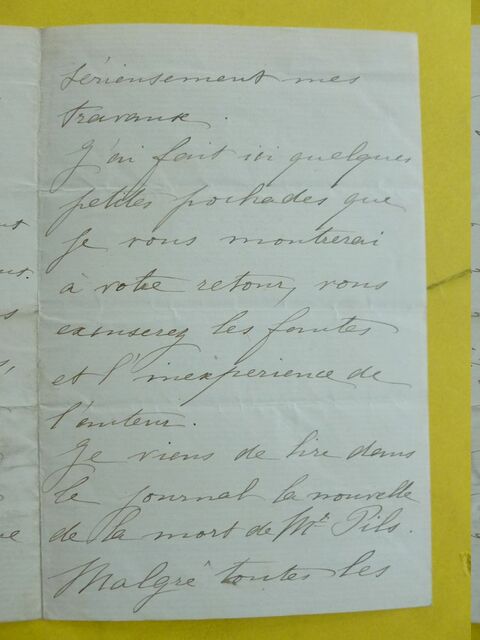 sérieusement mes
travaux.
J'ai fait ici quelques
petites pochades que
je vous montrerai
à votre retour, vous
excuserez les fautes
et l'inexperience de
l'auteur.
Je viens de lire dans
le journal la nouvelle
de la mort de Mr Pils.
Malgré toutes les